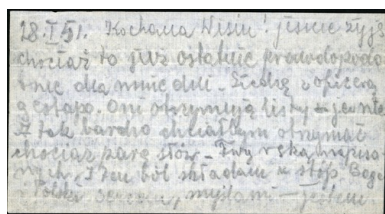 28.IV 51. Kochana Wisiu! jeszcze żyję
chociaż to już ostatnie prawdopodob
bnie dla mnie dni. Siedzę z oficerą
gestapo. Oni otrzymują listy – ja nie
A tak bardzo chciałbym otrzymać
chociaż parę słów – Twą ręką napisa
nych. I ten ból składam u stóp Boga
i Polski sercem, myślami – jestem